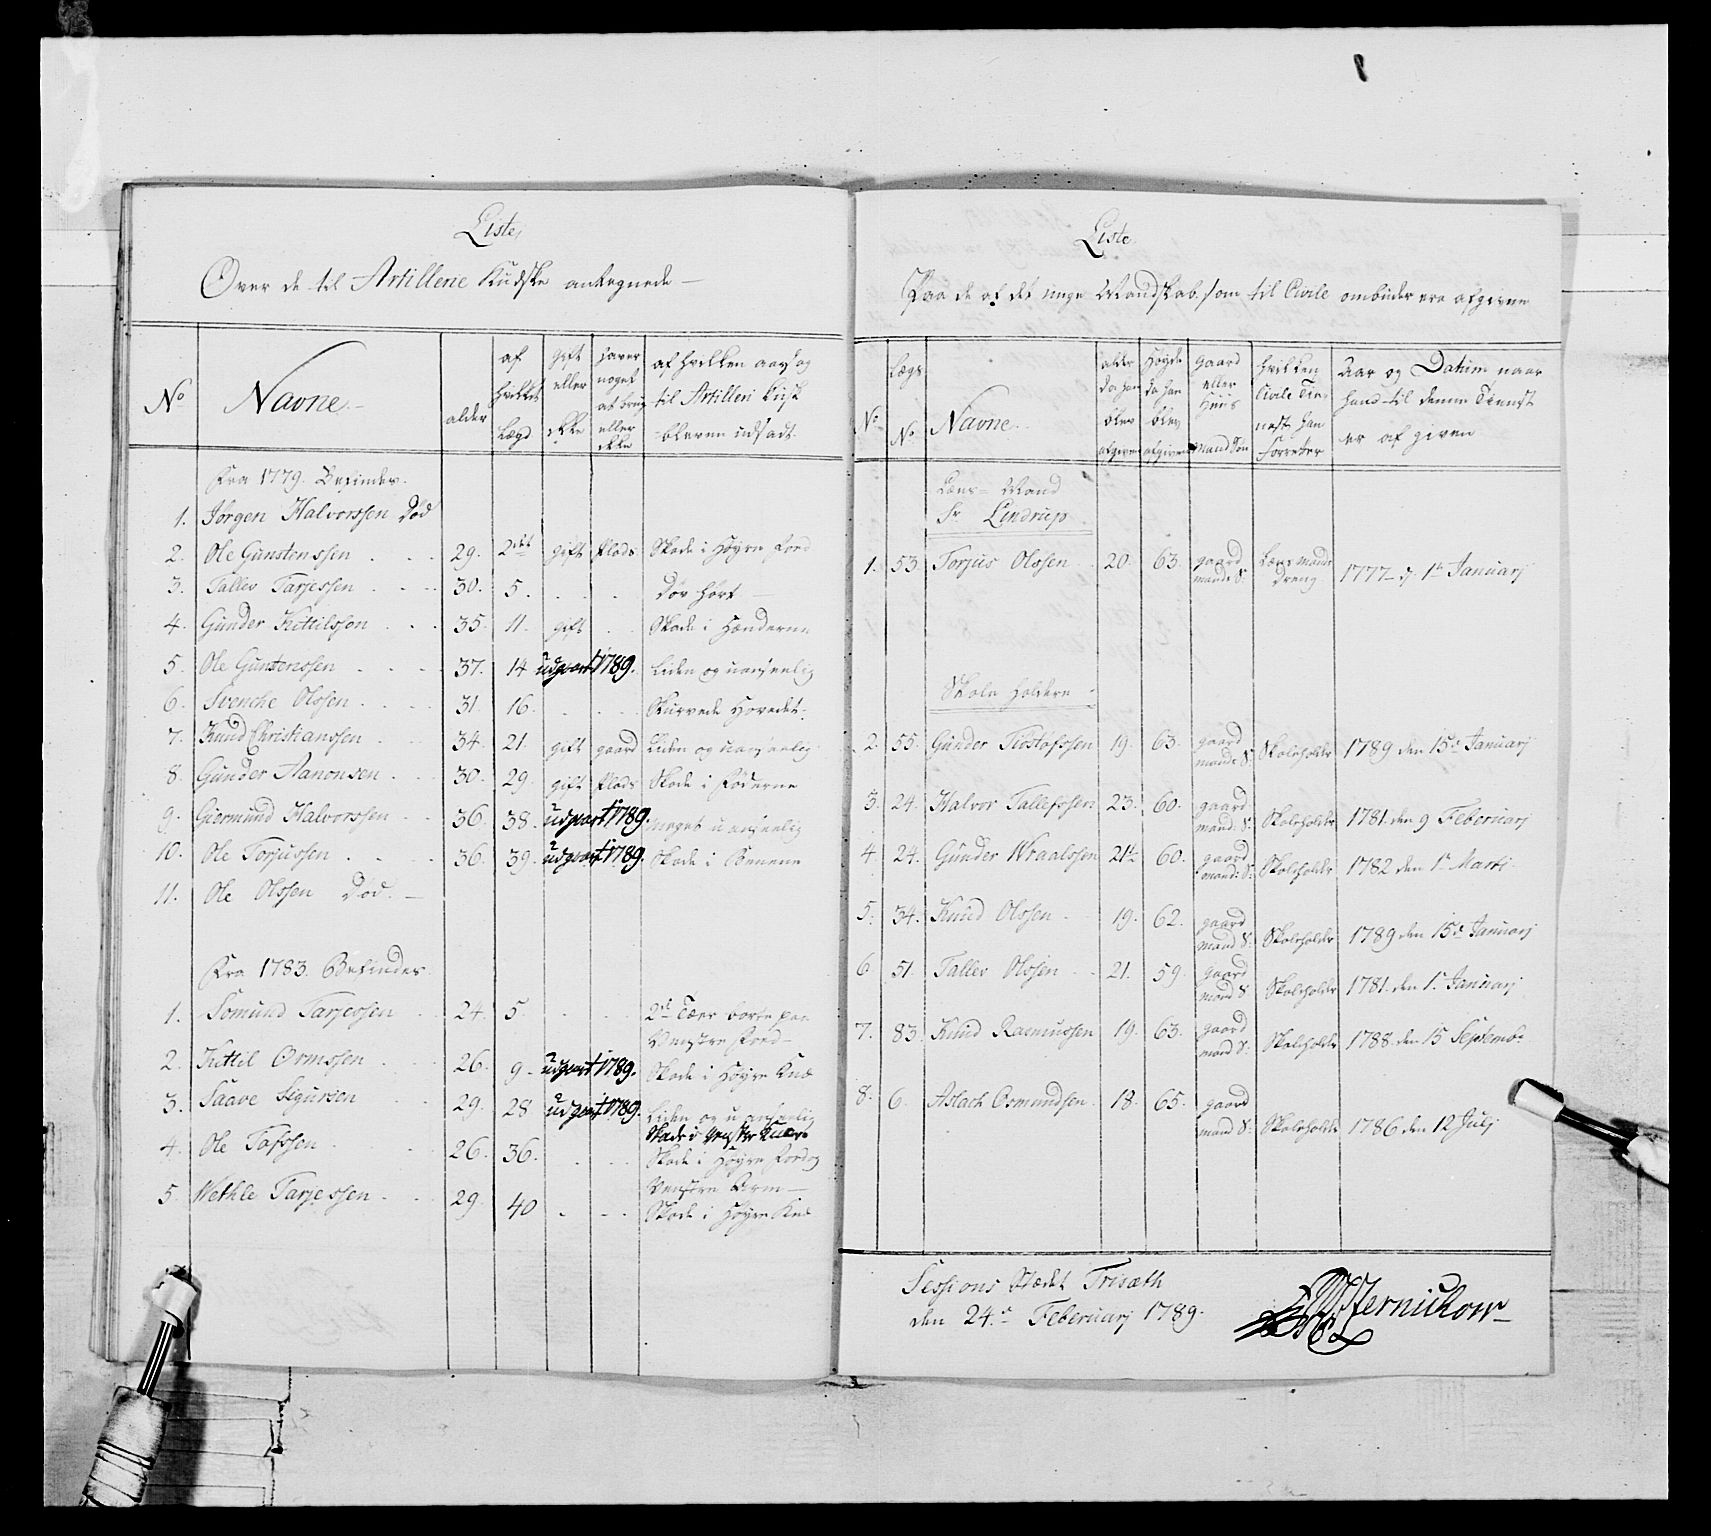 Liste,
Over de til Artillerie Kudske antegnede —
No
Navne.
alder
af hvilket Lægd
gift eller ikke
haver noget at brug eller ikke
af hvilken aarsag til Artilleri Kusk bleven udsadt.
Fra 1779. Befindes.
1. Jörgen Halvorssen Död
2. Ole Gunstenssen . . . 29. 2det gift Plads Skade i Höyre Foed
3. Tallev Tarjessen . . . 30. 5. . . . Döv hört —
4. Gunder Kittilsson . . . 35. 11. gift . . Skade i Hænderne
5. Ole Guntenssen . . . 37. 14 udgaart 1789. Liden og uanseelig
6. Svenche Olssen . . . 31. 16. . . . Skurvede Hovedet.
7. Knud Christianssen . . 34. 21. gift gaard Liden og uanseelig
8. Gunder Aanonsen . . 30. 29. gift Plads Skade i Föderne
9. Giermund Halvorssen . . 36. 38. udgaart 1789. meget uanseelig
10. Ole Torjussen . . . 36. 39. udgaart 1789. Skade i Benene
11. Ole Olssen Död. —
Fra 1783. Befindes
1. Somund Tarjessen . . 24. 5. . . . 2de Tæer borte paa
Venstre Foed —
2. Kittil Ormssen . . 26. 9. udgaart 1789. Skade i Höyre Knæ
3. Saave Sigursen . . 29. 28 udgaart 1789. Liden og uanseelig
Skade i Venstre Knæe
4. Ole Tofssen . . 26. 36. . . . Skade i Höyre Foed og
Venstre Arm —
5. Wethle Tarjessen . . 29. 40 . . . Skade i Höyre Knæ
Liste
Paa de af det unge Mandskab, som til Civile ombuder ere afgivne
No
Lægs No
Navne.
alder da han blev afgiven
Höyde da han blev afgiven
gaard eller Huus Mand Sön
hvilken Civile Tieneste han Forretter
Aar og Datum naar hand til denne Tienest er af given
Læns=Mand
Sr Lindrup.
1. 53. Torjus Olssen . . 20. 63. gaard mands S: Læns mands Dreng 1777 d. 1te Januarj
Skole Holdere
2. 55. Gunder Tiostofssen 19. 63. gaard mands S: Skoleholder 1789 den 15de Januarj
3. 24. Halvor Tallefssen 23. 60. gaard mand: S: Skoleholder 1781. den 9 Februarj
4. 24. Gunder Wraalssen 21½ 60. gaard mand: S: Skoleholder 1782 den 1te Marti
5. 34. Knud Olssen . . 19. 62. gaard mand S: Skoleholder 1789 den 15de Januarj
6. 51. Tallev Olssen . . 21. 59. gaard mand S Skoleholder 1781. den 1. Januarj
7. 83. Knud Rasmussen 19. 63. gaard mand S: Skoleholder 1788. den 15 Septembr
8. 6. Aslach Osmundsen. 18. 65. gaard mand S: Skoleholder 1786 den 12 Julj
Sessions Stædet Trisæth
den 24de Februarj 1789.